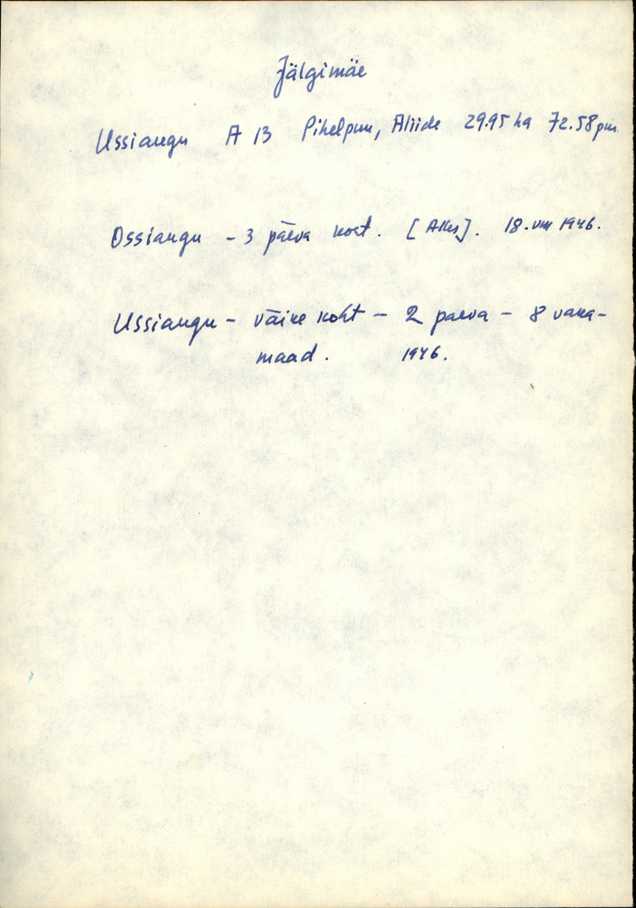 Jälgimäe
Ussiangu A 13 Pihelpuu, Aliide 29.95 ha 72.58 pm
Ossiangu - 3 päeva koht. [Akes]. 18. VIII 1946.
Ussiangu - väike koht - 2 päeva - 8 vaka-
maad. 1946.